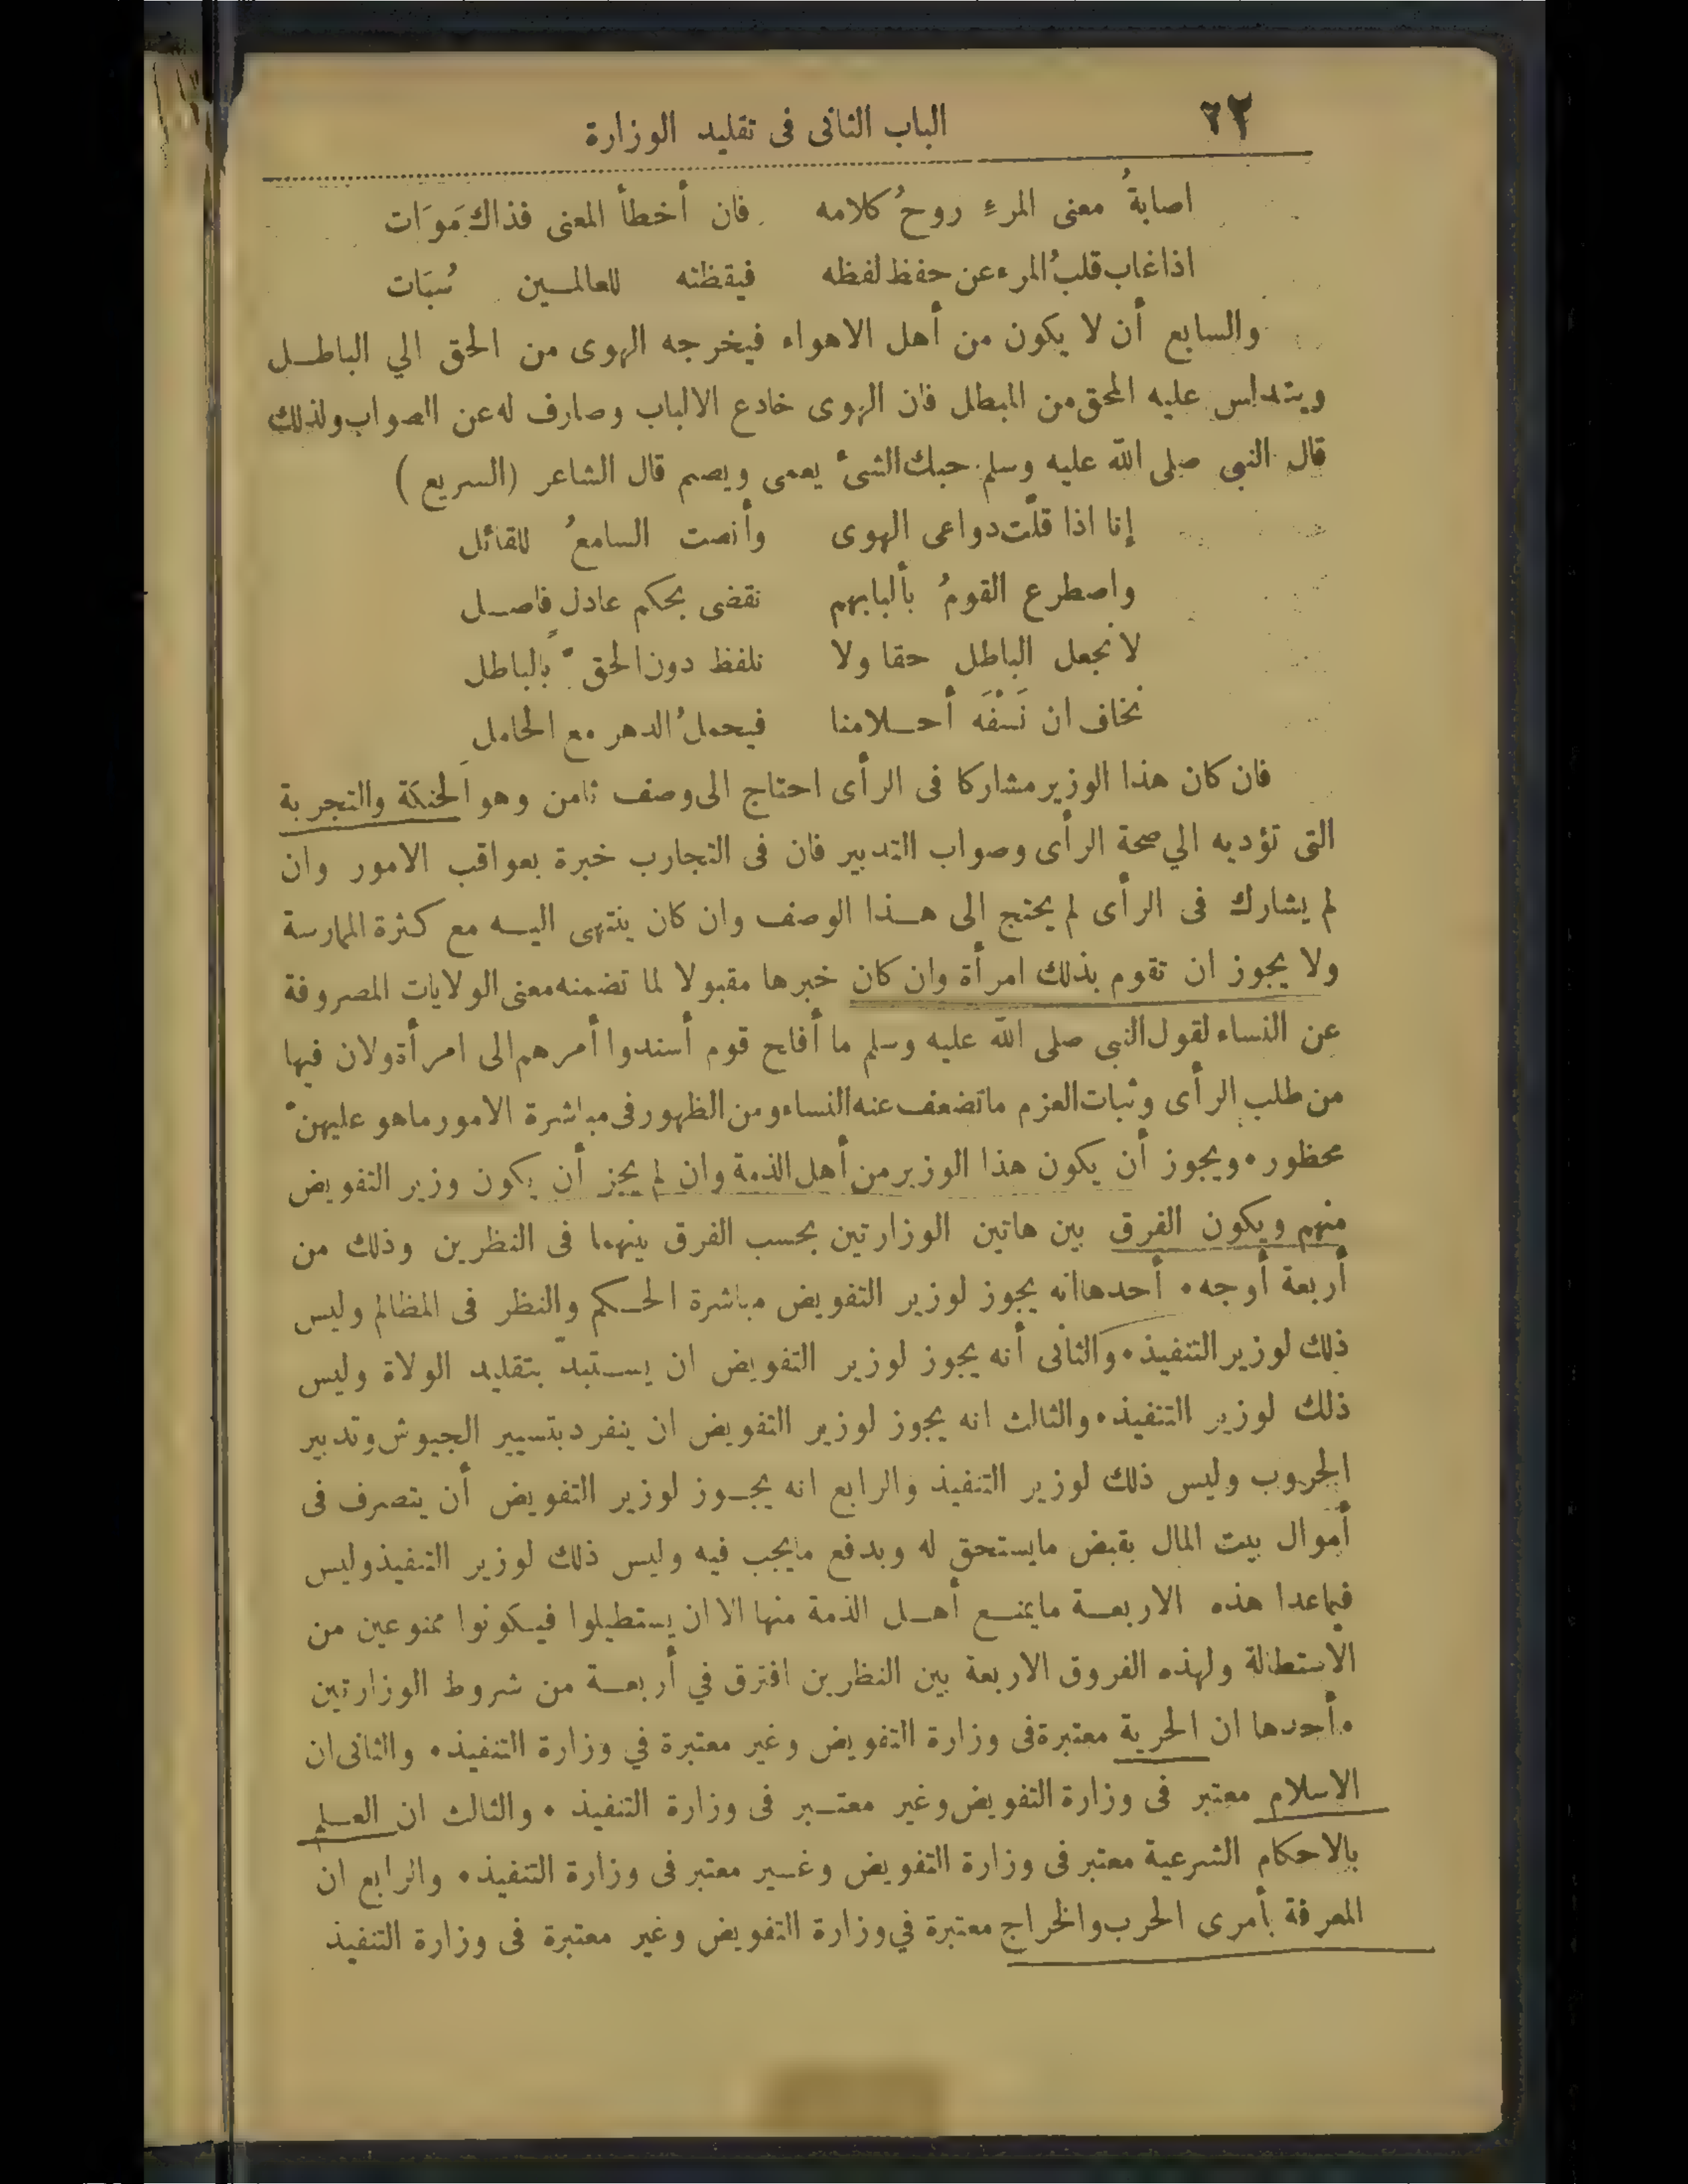 ٢٢ الباب الثانى فى تقليد الوزارة
اصابةُ معنى المرءِ روحُ كلامه فان أخطأ المعنى فذاك مَوَات
اذا غاب قلبُ المرء عن حفظ لفظه فيقظته للعالمين سُبَات
والسابع أن لا يكون من أهل الاهواء فيخرجه الهوى من الحق الي الباطل
ويتدلس عليه المحق من المبطل فان الهوى خادع الالباب وصارف له عن الصواب ولذلك
قال النبى صلى الله عليه وسلم حبك الشئ يعمى ويصم قال الشاعر (السريع)
إنا اذا قلّت دواعى الهوى وأنصت السامعُ للقائل
واصطرع القومُ بألبابهم نقضى بحكم عادل فاصل
لا نجعل الباطل حقا ولا نلفظ دون الحقّ بالباطل
نخاف ان تَسْفَه أحلامنا فيحملُ الدهر مع الحامل
فان كان هذا الوزير مشاركا فى الرأى احتاج الى وصف ثامن وهو الحنكة والتجربة
التى تؤديه الي صحة الرأى وصواب التدبير فان فى التجارب خبرة بعواقب الامور وان
لم يشارك فى الرأى لم يحتج الى هذا الوصف وان كان ينتهى اليه مع كثرة الممارسة
ولا يجوز ان تقوم بذلك امرأة وان كان خبرها مقبولا لما تضمنه معنى الولايات المصروفة
عن النساء لقول النبى صلى الله عليه وسلم ما أفلح قوم أسندوا أمرهم الى امرأة ولان فيها
من طلب الرأى وثبات العزم ماتضعف عنه النساء ومن الظهور فى مباشرة الامور ماهو عليهنّ
محظور • ويجوز أن يكون هذا الوزير من أهل الذمة وان لم يجز أن يكون وزير التفويض
منهم ويكون الفرق بين هاتين الوزارتين بحسب الفرق بينهما فى النظرين وذلك من
أربعة أوجه • أحدها انه يجوز لوزير التفويض مباشرة الحكم والنظر فى المظالم وليس
ذلك لوزير التنفيذ • والثانى أنه يجوز لوزير التفويض ان يستبدّ بتقليد الولاة وليس
ذلك لوزير التنفيذ • والثالث انه يجوز لوزير التفويض ان ينفرد بتسيير الجيوش وتدبير
الحروب وليس ذلك لوزير التنفيذ والرابع انه يجوز لوزير التفويض أن يتصرف فى
أموال بيت المال بقبض مايستحق له وبدفع مايجب فيه وليس ذلك لوزير التنفيذ وليس
فيما عدا هذه الاربعة مايمنع أهل الذمة منها الا ان يستطيلوا فيكونوا ممنوعين من
الاستطالة ولهذه الفروق الاربعة بين النظرين افترق في أربعة من شروط الوزارتين
• أحدها ان الحرية معتبرة فى وزارة التفويض وغير معتبرة في وزارة التنفيذ • والثانى ان
الاسلام معتبر فى وزارة التفويض وغير معتبر فى وزارة التنفيذ • والثالث ان العلم
بالاحكام الشرعية معتبر فى وزارة التفويض وغير معتبر فى وزارة التنفيذ • والرابع ان
المعرفة بأمرى الحرب والخراج معتبرة في وزارة التفويض وغير معتبرة فى وزارة التنفيذ